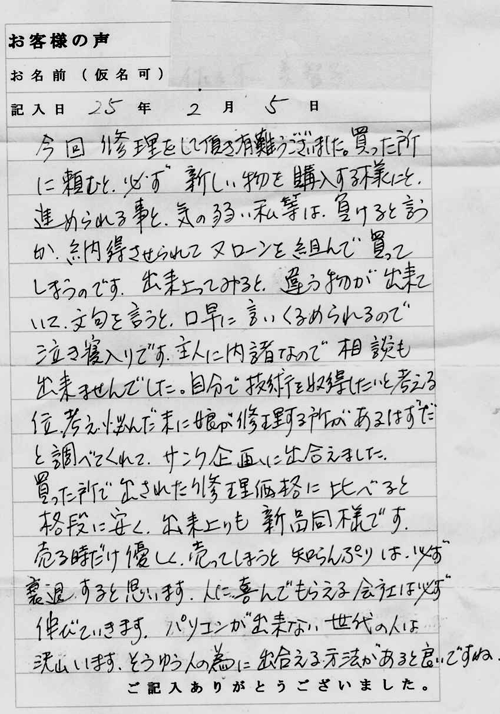 お客様の声
お名前（仮名可）
記入日 25年 2月 5日
今回 修理をして頂き有難うございました。買った所
に頼むと、必ず 新しい物を購入する様にと、
進められる事と、気の弱い私等は、負けると言う
か、納得させられて 又ローンを組んで買って
しまうのです。出来上ってみると、違う物が出来て
いて、文句を言うと、口早に言いくるめられるので
泣き寝入りです。主人に内諸なので 相談も
出来ませんでした。自分で技術を収得したいと考える
位、考え悩んだ末に娘が修理する所があるはずだ
と調べてくれて、サンク企画に出合えました。
買った所で出されたり修理価格に比べると
格段に安く、出来上りも 新品同様です。
売る時だけ優しく、売ってしまうと 知らんぷりは、必ず
衰退すると思います。人に喜んでもらえる会社は必ず
伸びていきます。パソコンが出来ない世代の人は
沢山います。そうゆう人の為に出合える方法があると良いですね。
ご記入ありがとうございました。